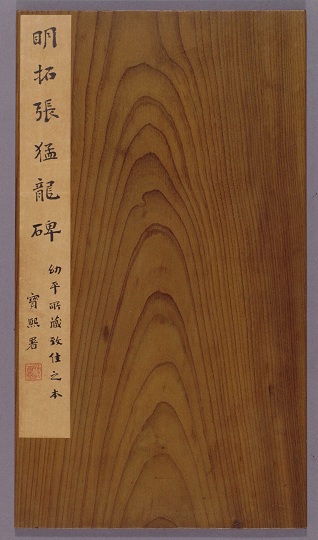 明拓張猛龍碑
幼平所藏致佳之本
寶熙署